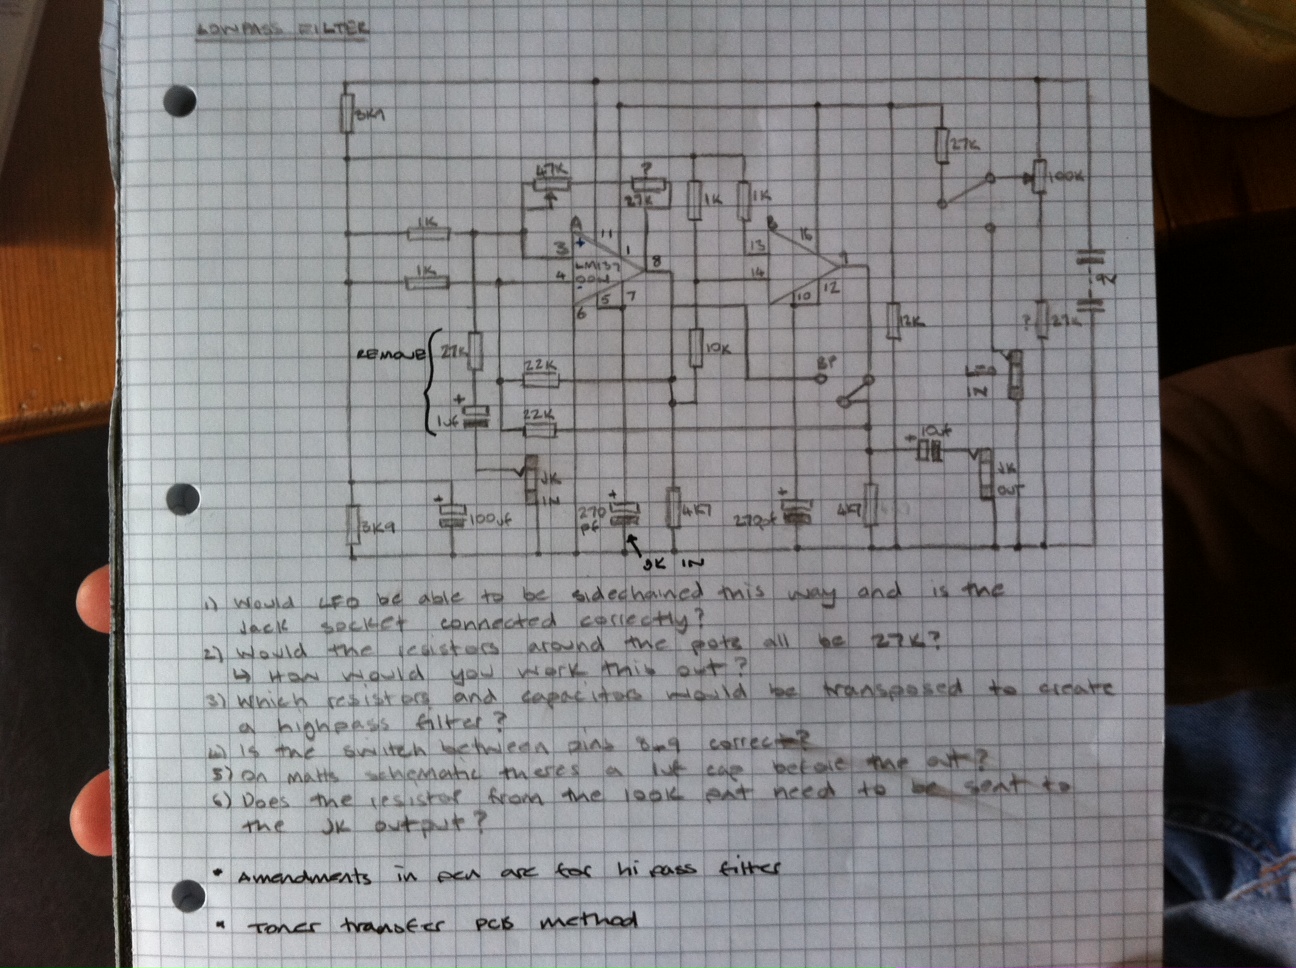 LOWPASS FILTER
3K9
47K
?
27K
27K
1K
1K
100K
1K
A
11
B
16
3
+
1
13
9
1K
4
LM137
00N
8
14
5
7
10
12
6
12K
?
27K
REMOVE
27K
10K
22K
BP
IN
+
1uf
22K
+
10uf
JK
IN
JK
OUT
+
3K9
100uf
+
270
pf
4K7
+
270pf
4K7
JK IN
1) Would LFO be able to be sidechained this way and is the
Jack socket connected correctly?
2) Would the resistors around the pots all be 27K?
↳ How would you work this out?
3) Which resistors and capacitors would be transposed to create
a highpass filter?
4) Is the switch between pins 8+9 correct?
5) On matts schematic theres a 1uf cap before the out?
6) Does the resistor from the 100k pot need to be sent to
the JK output?
* Amendments in pen are for hi pass filter
* Toner transfer PCB method